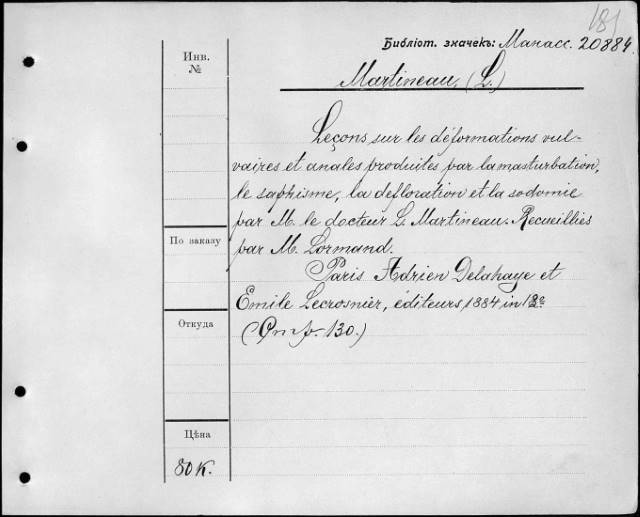 181
Библіот. значекъ: Манасс. 20884.
Инв.
№
Martineau, (L.)
Leçons sur les déformations vul-
vaires et anales produites par la masturbation,
le saphisme, la defloration et la sodomie
par M. le docteur L. Martineau. Recueillies
По заказу
par M. Lormand.
Paris Adrien Delahaye et
Emile Lecrosnier, éditeurs, 1884 in 12º
Откуда
130.)
Цѣна
80 к.